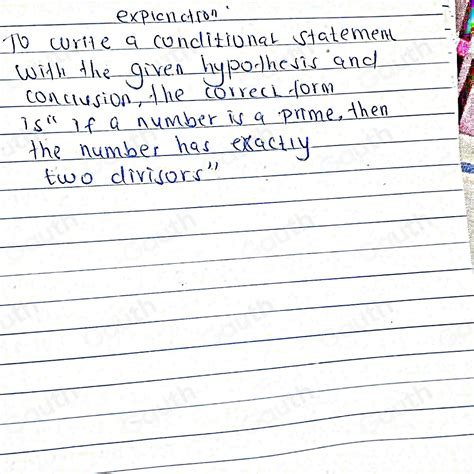 explanation.
To write a conditional statement
with the given hypothesis and
conclusion, the correct form
is "if a number is a prime, then
the number has exactly
two divisors"